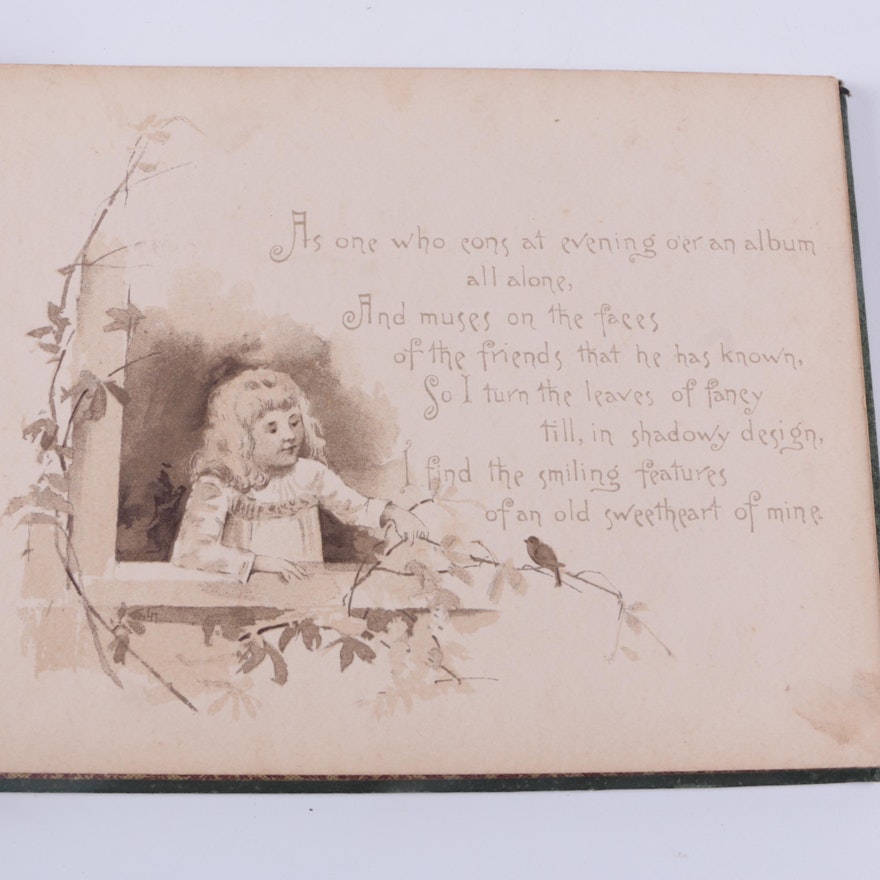 As one who cons at evening o'er an album
all alone,
And muses on the faces
of the friends that he has known,
So I turn the leaves of fancy
till, in shadowy design,
I find the smiling features
of an old sweetheart of mine.